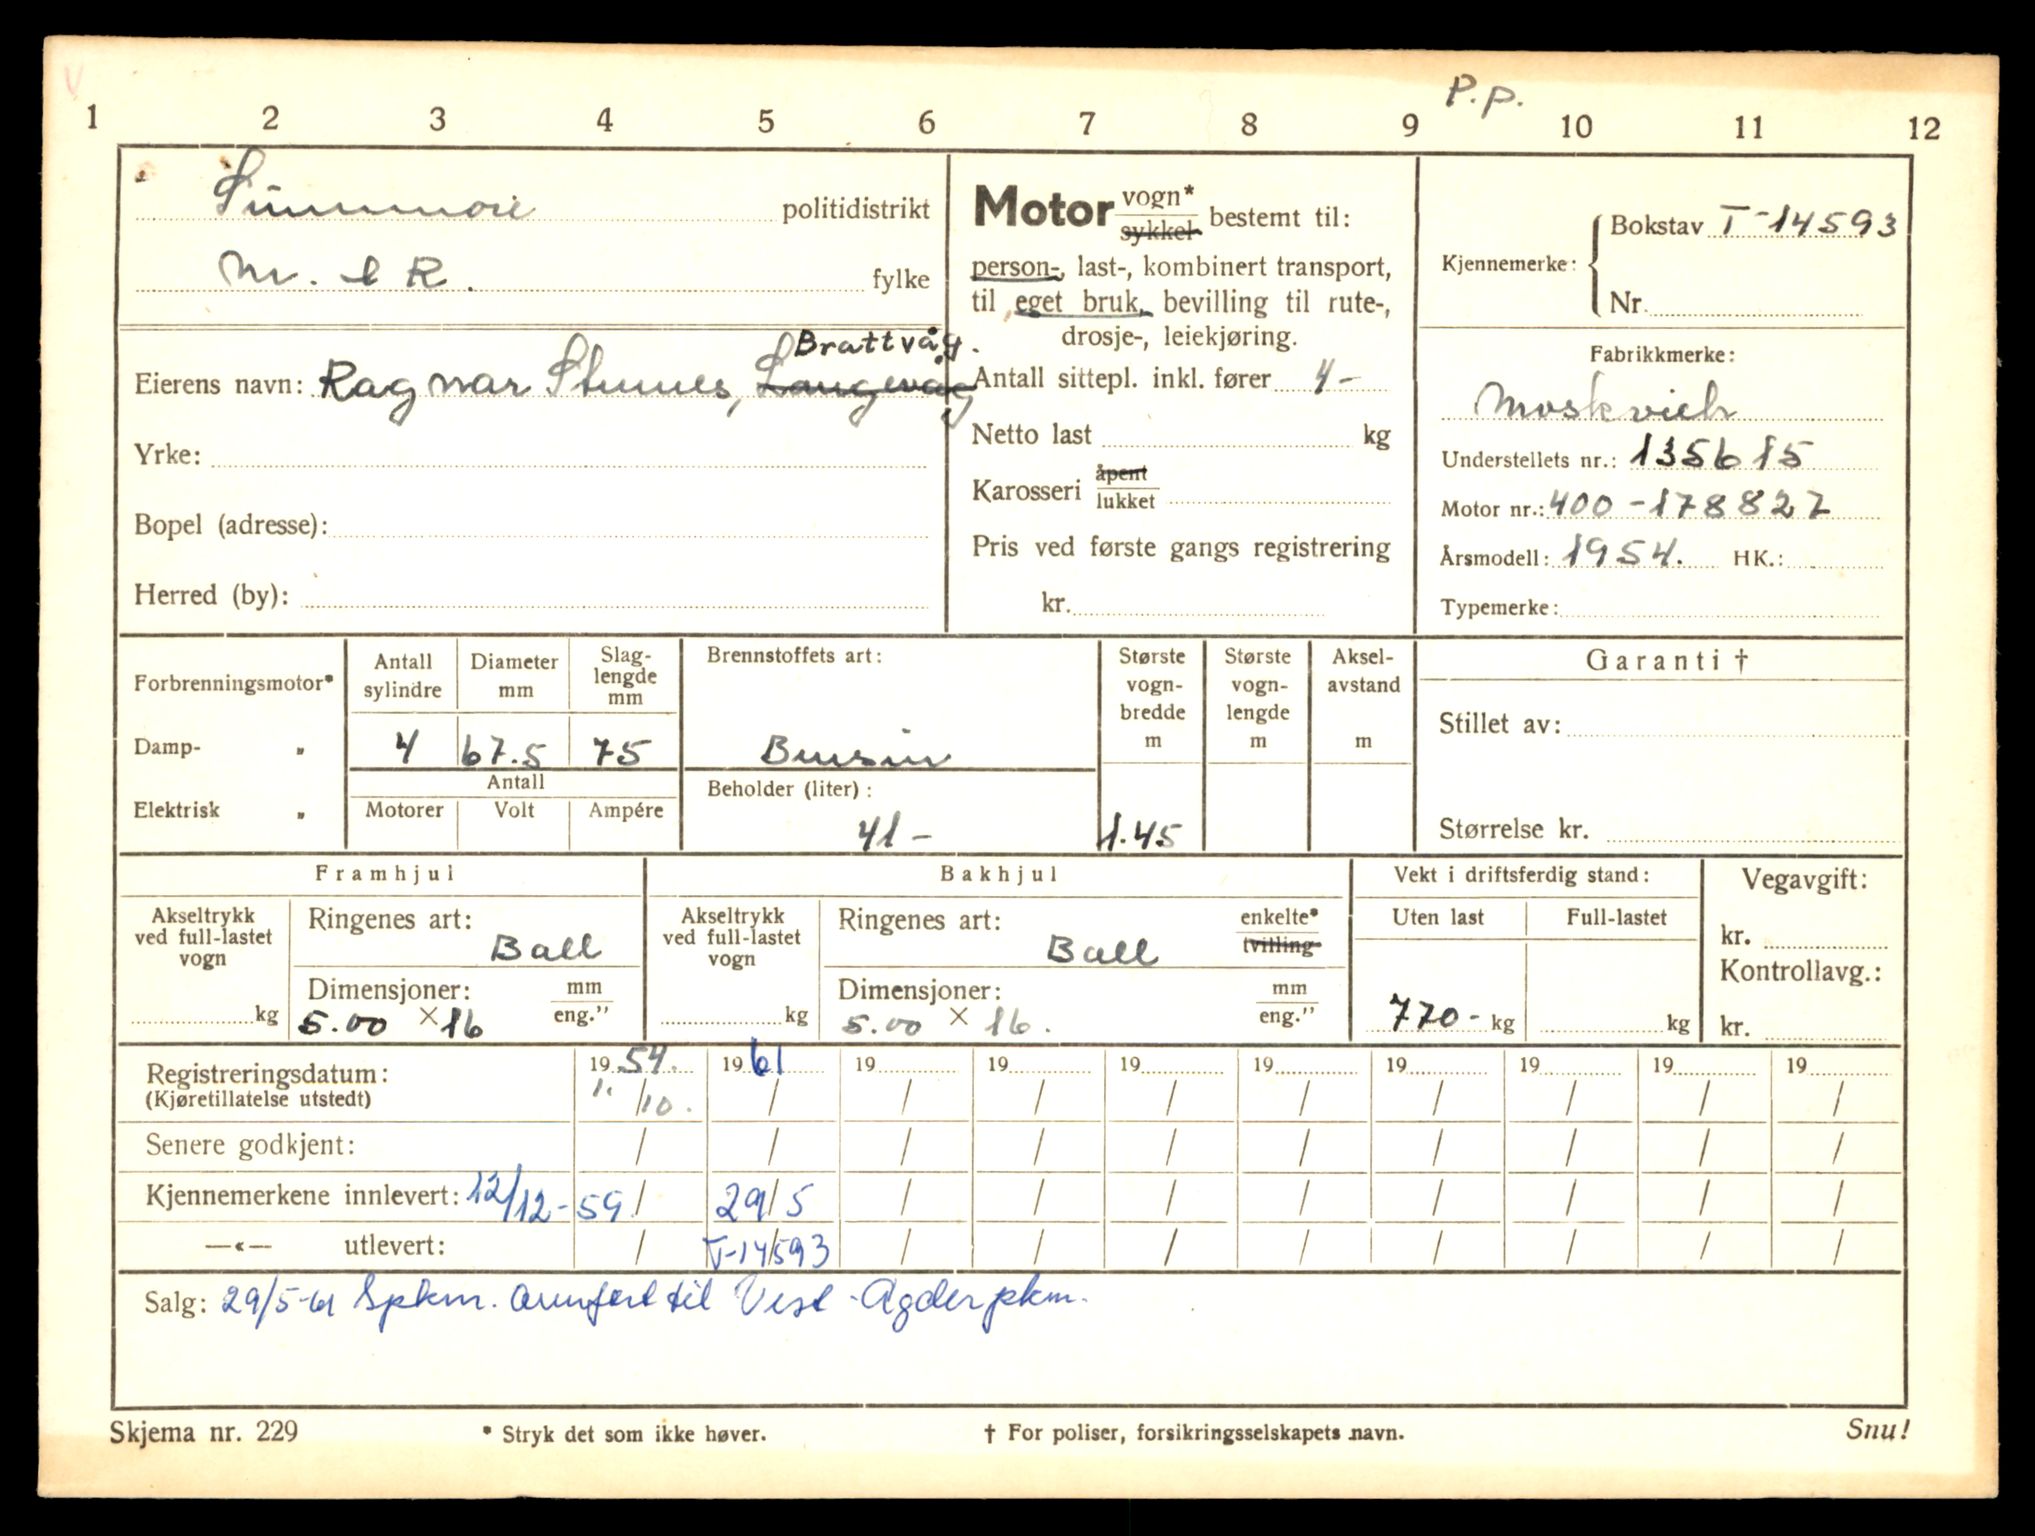 P.p.
1 2 3 4 5 6 7 8 9 10 11 12
Sunnmøre politidistrikt
M. & R. fylke
Eierens navn: Ragnar Stennes, Langevåg Brattvåg.
Yrke:
Bopel (adresse):
Herred (by):
Motor vogn* sykkel bestemt til:
person-, last-, kombinert transport,
til eget bruk, bevilling til rute-,
drosje-, leiekjøring.
Antall sittepl. inkl. fører 4-
Netto last kg
Karosseri åpent lukket
Pris ved første gangs registrering
kr.
Kjennemerke: Bokstav T-14593
Nr.
Fabrikkmerke:
Moskvich
Understellets nr.: 135615
Motor nr.: 400-178827
Årsmodell: 1954. HK.:
Typemerke:
Forbrenningsmotor*
Damp- "
Elektrisk "
Antall sylindre
4
Diameter mm
67.5
Slag-lengde mm
75
Antall
Motorer Volt Ampére
Brennstoffets art:
Bensin
Beholder (liter):
41-
Største vogn-bredde m
1.45
Største vogn-lengde m
Aksel-avstand m
Garanti †
Stillet av:
Størrelse kr.
Framhjul
Akseltrykk ved full-lastet vogn
kg
Ringenes art:
Ball
Dimensjoner: mm eng."
5.00 × 16
Bakhjul
Akseltrykk ved full-lastet vogn
kg
Ringenes art: enkelte* tvilling
Ball
Dimensjoner: mm eng."
5.00 × 16.
Vekt i driftsferdig stand:
Uten last Full-lastet
770- kg kg
Vegavgift:
kr.
Kontrollavg.:
kr.
Registreringsdatum: 19 54. 19 61 19 19 19 19 19 19 19 19
(Kjøretillatelse utstedt) 1. / 10. / / / / / / / / /
Senere godkjent: / / / / / / / / / /
Kjennemerkene innlevert: 12/12-59 / 29/5 / / / / / / / /
—«— utlevert: / T-14593 / / / / / / / /
Salg: 29/5-61 Spkm. overført til Vest-Agder pkm.
Skjema nr. 229 * Stryk det som ikke høver. † For poliser, forsikringsselskapets navn. Snu!